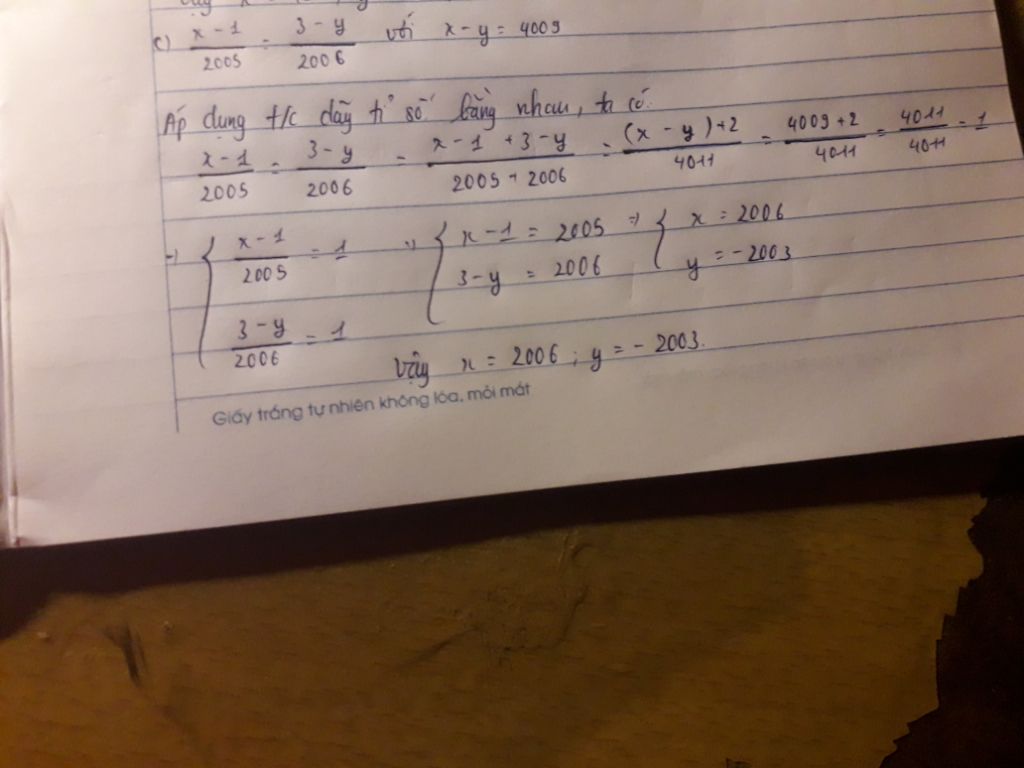 c) x - 1 / 2005 = 3 - y / 2006 với x - y = 4009
Áp dụng t/c dãy tỉ số bằng nhau, ta có:
x - 1 / 2005 = 3 - y / 2006 = x - 1 + 3 - y / 2005 + 2006 = (x - y) + 2 / 4011 = 4009 + 2 / 4011 = 4011 / 4011 = 1
=> { x - 1 / 2005 = 1 => { x - 1 = 2005 => { x = 2006
3 - y = 2006 y = -2003
3 - y / 2006 = 1
Vậy x = 2006 ; y = - 2003.
Giấy trắng tự nhiên không lóa, mỏi mát